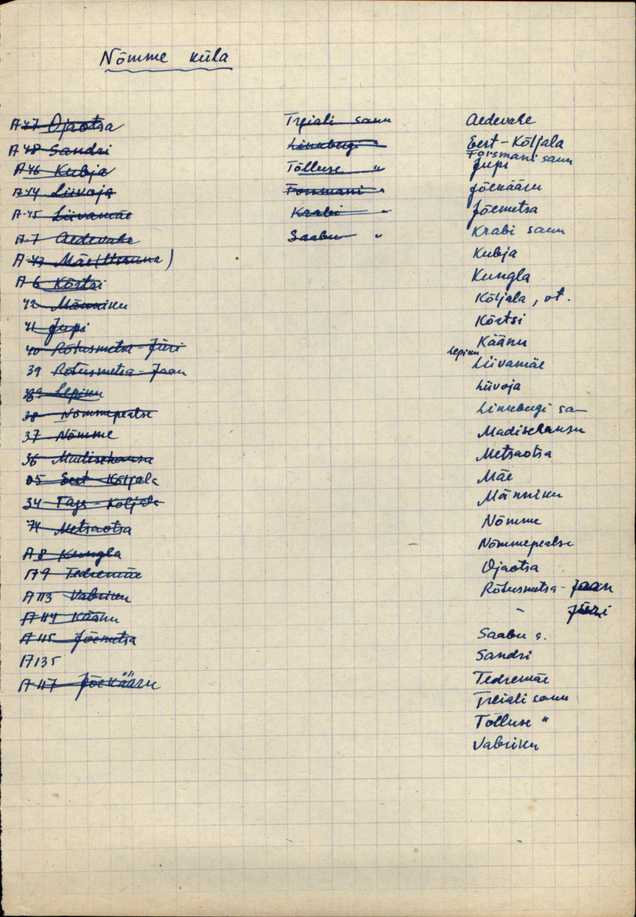 Nõmme küla
A 47 Ojaotsa
A 48 Sandri
A 46 Kubja
A 44 Liivoja
A 45 Liivamäe
A 7 Aedevahe
A 43 Mäe
A 6 Kõrtsi
42 Männiku
41 Jupi
40 Rõtusmetsa-Jüri
39 Rõtusmetsa-Jaan
Lepiku
38 Nõmmepealse
37 Nõmme
36 Madisehansu
35 Eest-Kõljala
34 Taga-Kõljala
74 Metsaotsa
A 8 Kungla
A 9 Tedremäe
A 113 Vabriku
A 114 Käänu
A 115 Jõemetsa
A 135
A 117 Jõekääru
Treiali saun
Linnbugi "
Tõlluse "
Forsmani "
Krabi "
Saabu "
Aedevahe
Eest-Kõljala
Forsmani saun
Jupi
Jõekääru
Jõemetsa
Krabi saun
Kubja
Kungla
Kõljala, vt.
Kõrtsi
Käänu
Lepiku
Liivamäe
Liivoja
Linnbugi sa
Madisehansu
Metsaotsa
Mäe
Männiku
Nõmme
Nõmmepealse
Ojaotsa
Rõtusmetsa-Jaan
" Jüri
Saabu s.
Sandri
Tedremäe
Treiali saun
Tõlluse "
Vabriku